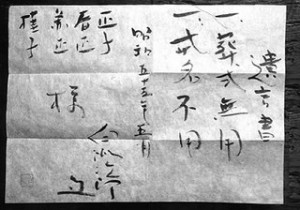 遺言書
一、葬式無用
一、戒名不用
昭和五十五年五月
正子
春正
兼正
桂子
様